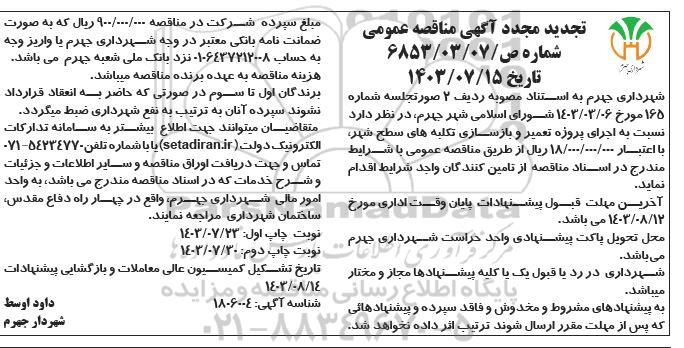 شهرداری جهرم
تجدید مجدد آگهی مناقصه عمومی
شماره ص/۶۸۵۳/۰۳/۰۷
تاریخ ۱۴۰۳/۰۷/۱۵
شهرداری جهرم به استناد مصوبه ردیف ۲ صورتجلسه شماره
۱۶۵ مورخ ۱۴۰۳/۰۳/۰۶ شورای اسلامی شهر جهرم، در نظر دارد
نسبت به اجرای پروژه تعمیر و بازسازی تکلیه های سطح شهر،
با اعتبار ۱۸/۰۰۰/۰۰۰/۰۰۰ ریال از طریق مناقصه عمومی با شرایط
مندرج در اسناد مناقصه از تامین کنندگان واجد شرایط اقدام
نماید.
آخرین مهلت قبول پیشنهادات پایان وقت اداری مورخ
۱۴۰۳/۰۸/۱۲ می باشد.
محل تحویل پاکت پیشنهادی واحد حراست شهرداری جهرم
می‌باشد.
شهرداری در رد یا قبول یک یا کلیه پیشنهادها مجاز و مختار
میباشد.
به پیشنهادهای مشروط و مخدوش و فاقد سپرده و پیشنهادهائی
که پس از مهلت مقرر ارسال شوند ترتیب اثر داده نخواهد شد.
مبلغ سپرده شرکت در مناقصه ۹۰۰/۰۰۰/۰۰۰ ریال که به صورت
ضمانت نامه بانکی معتبر در وجه شهرداری جهرم یا واریز وجه
به حساب ۰۱۰۶۴۳۷۲۱۲۰۰۸ نزد بانک ملی شعبه جهرم می باشد.
هزینه مناقصه به عهده برنده مناقصه میباشد.
برندگان اول تا سوم در صورتی که حاضر به انعقاد قرارداد
نشوند سپرده آنان به ترتیب به نفع شهرداری ضبط میگردد.
متقاضیان میتوانند جهت اطلاع بیشتر به سامانه تدارکات
الکترونیک دولت (setadiran.ir) یا با شماره تلفن ۵۴۲۳۴۷۷۰-۰۷۱
تماس و جهت دریافت اوراق مناقصه و سایر اطلاعات و جزئیات
و شرح خدمات که در اسناد مناقصه مندرج می باشد، به واحد
امور مالی شهرداری جهرم، واقع در چهار راه دفاع مقدس،
ساختمان شهرداری مراجعه نمایند.
نوبت چاپ اول: ۱۴۰۳/۰۷/۲۳
نوبت چاپ دوم: ۱۴۰۳/۰۷/۳۰
تاریخ تشکیل کمیسیون عالی معاملات و بازگشایی پیشنهادات
۱۴۰۳/۰۸/۱۴
شناسه آگهی: ۱۸۰۶۰۰۴
داود اوسط
شهردار جهرم
ParsNamadData
مرکز فرآوری اطلاعات
پایگاه اطلاع رسانی مناقصه و مزایده
۰۲۱-۸۸۳۴۹۶۷۰-۵